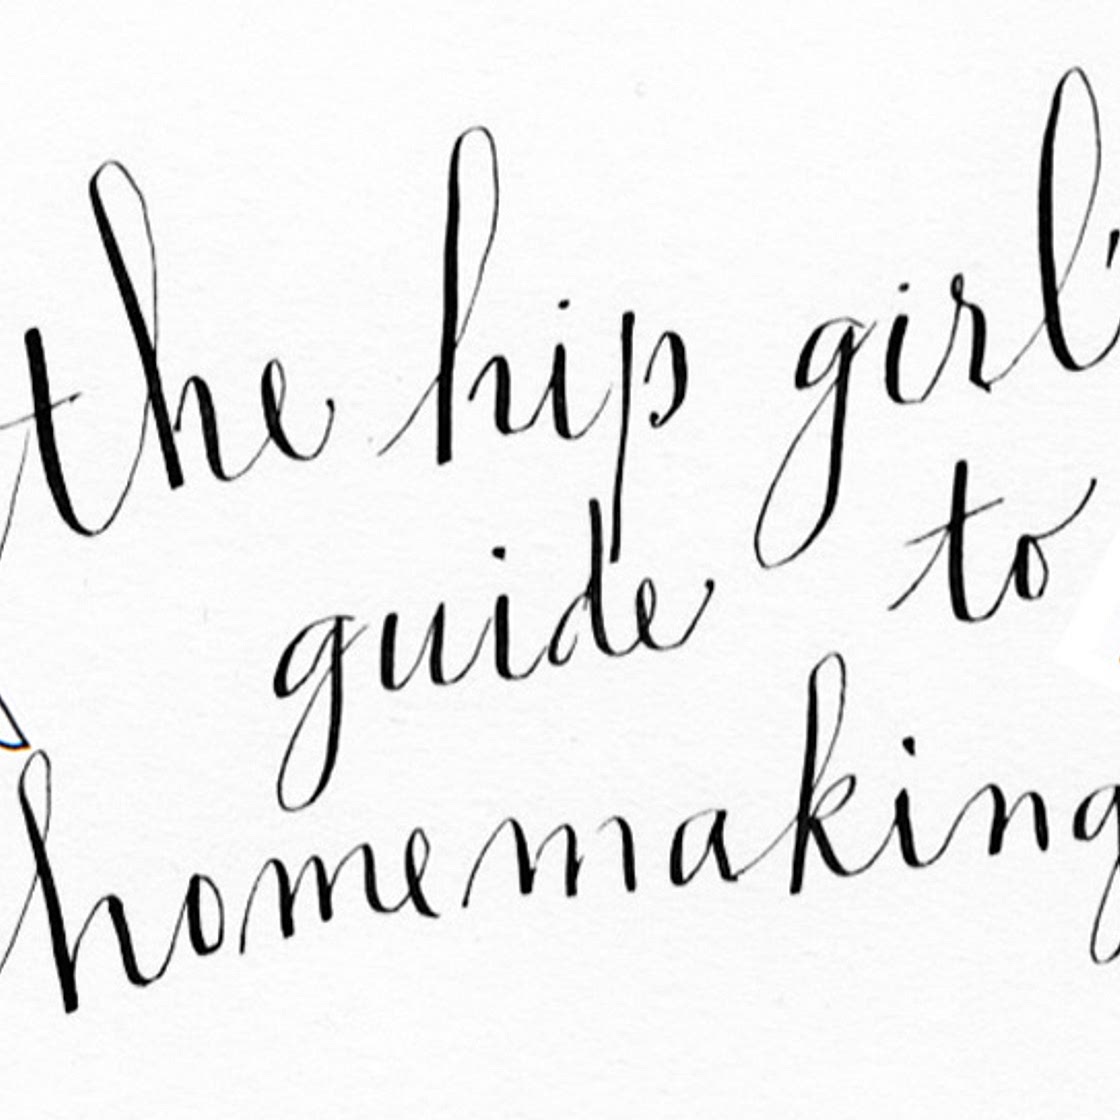 the hip girl'
guide to
homemaking